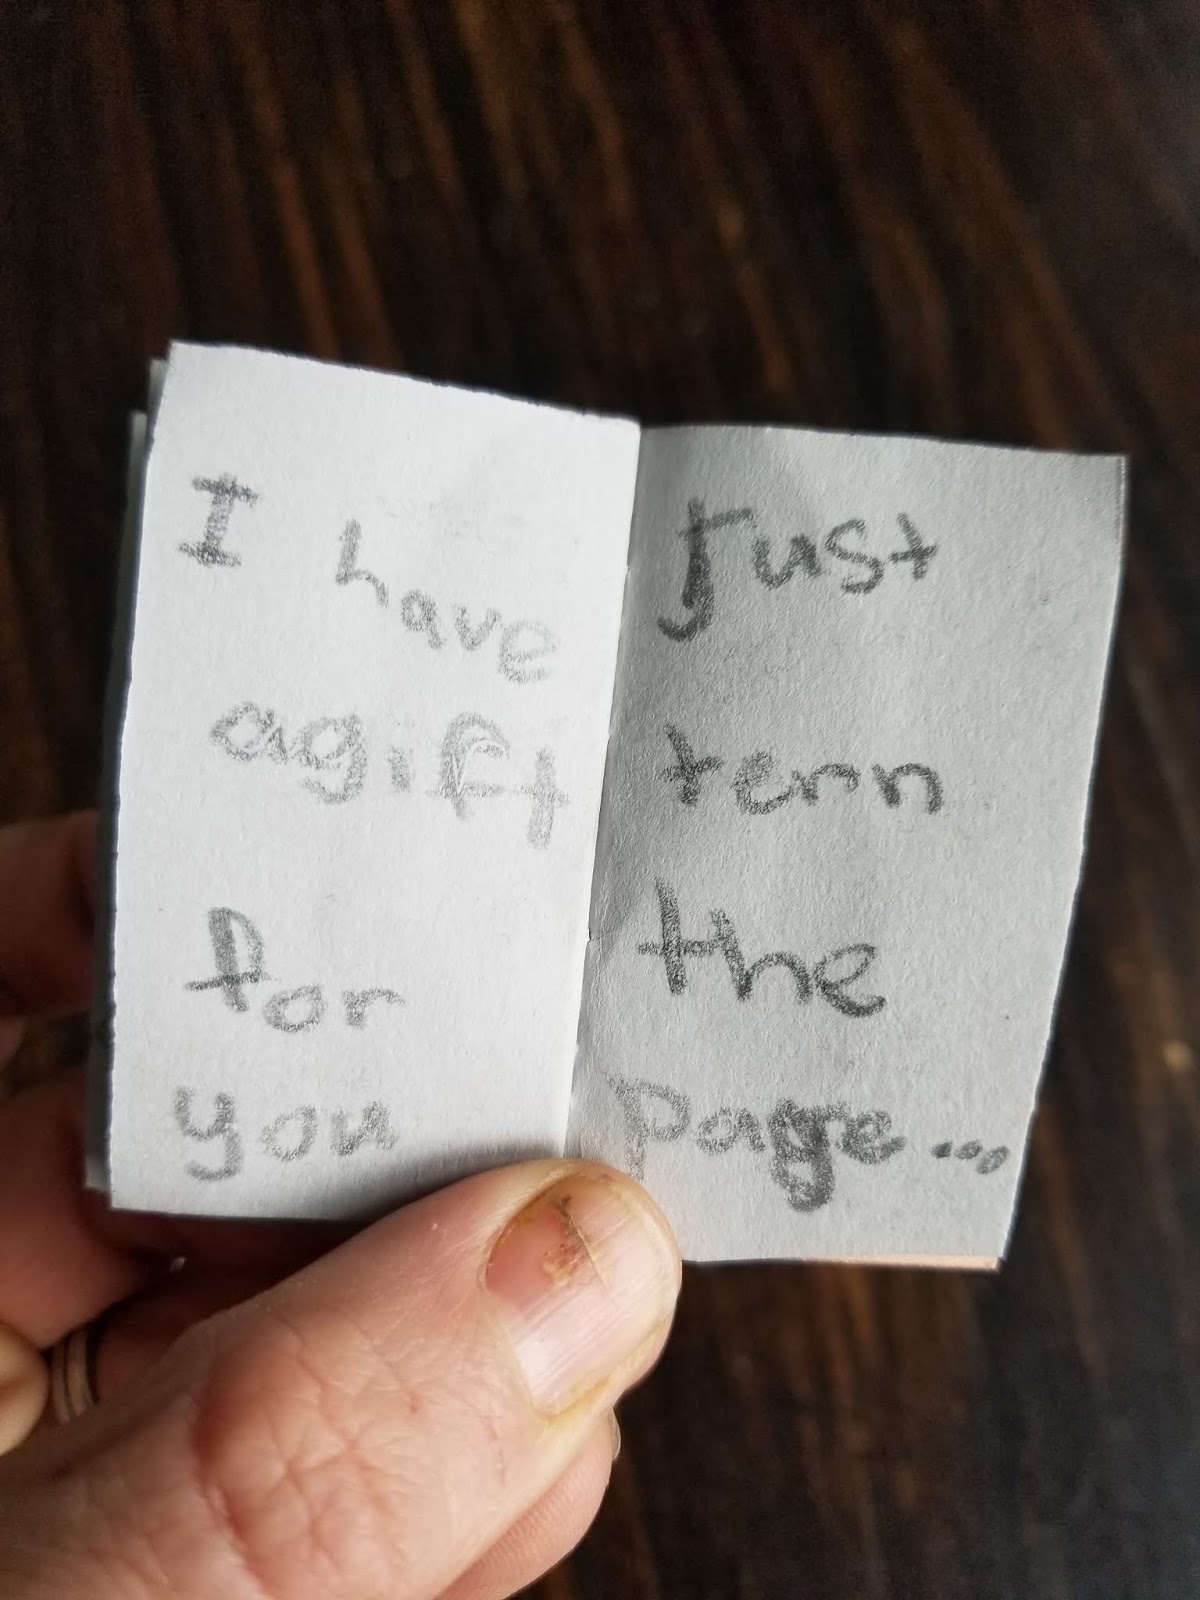 I have
agift
for
you
Just
tern
the
page...